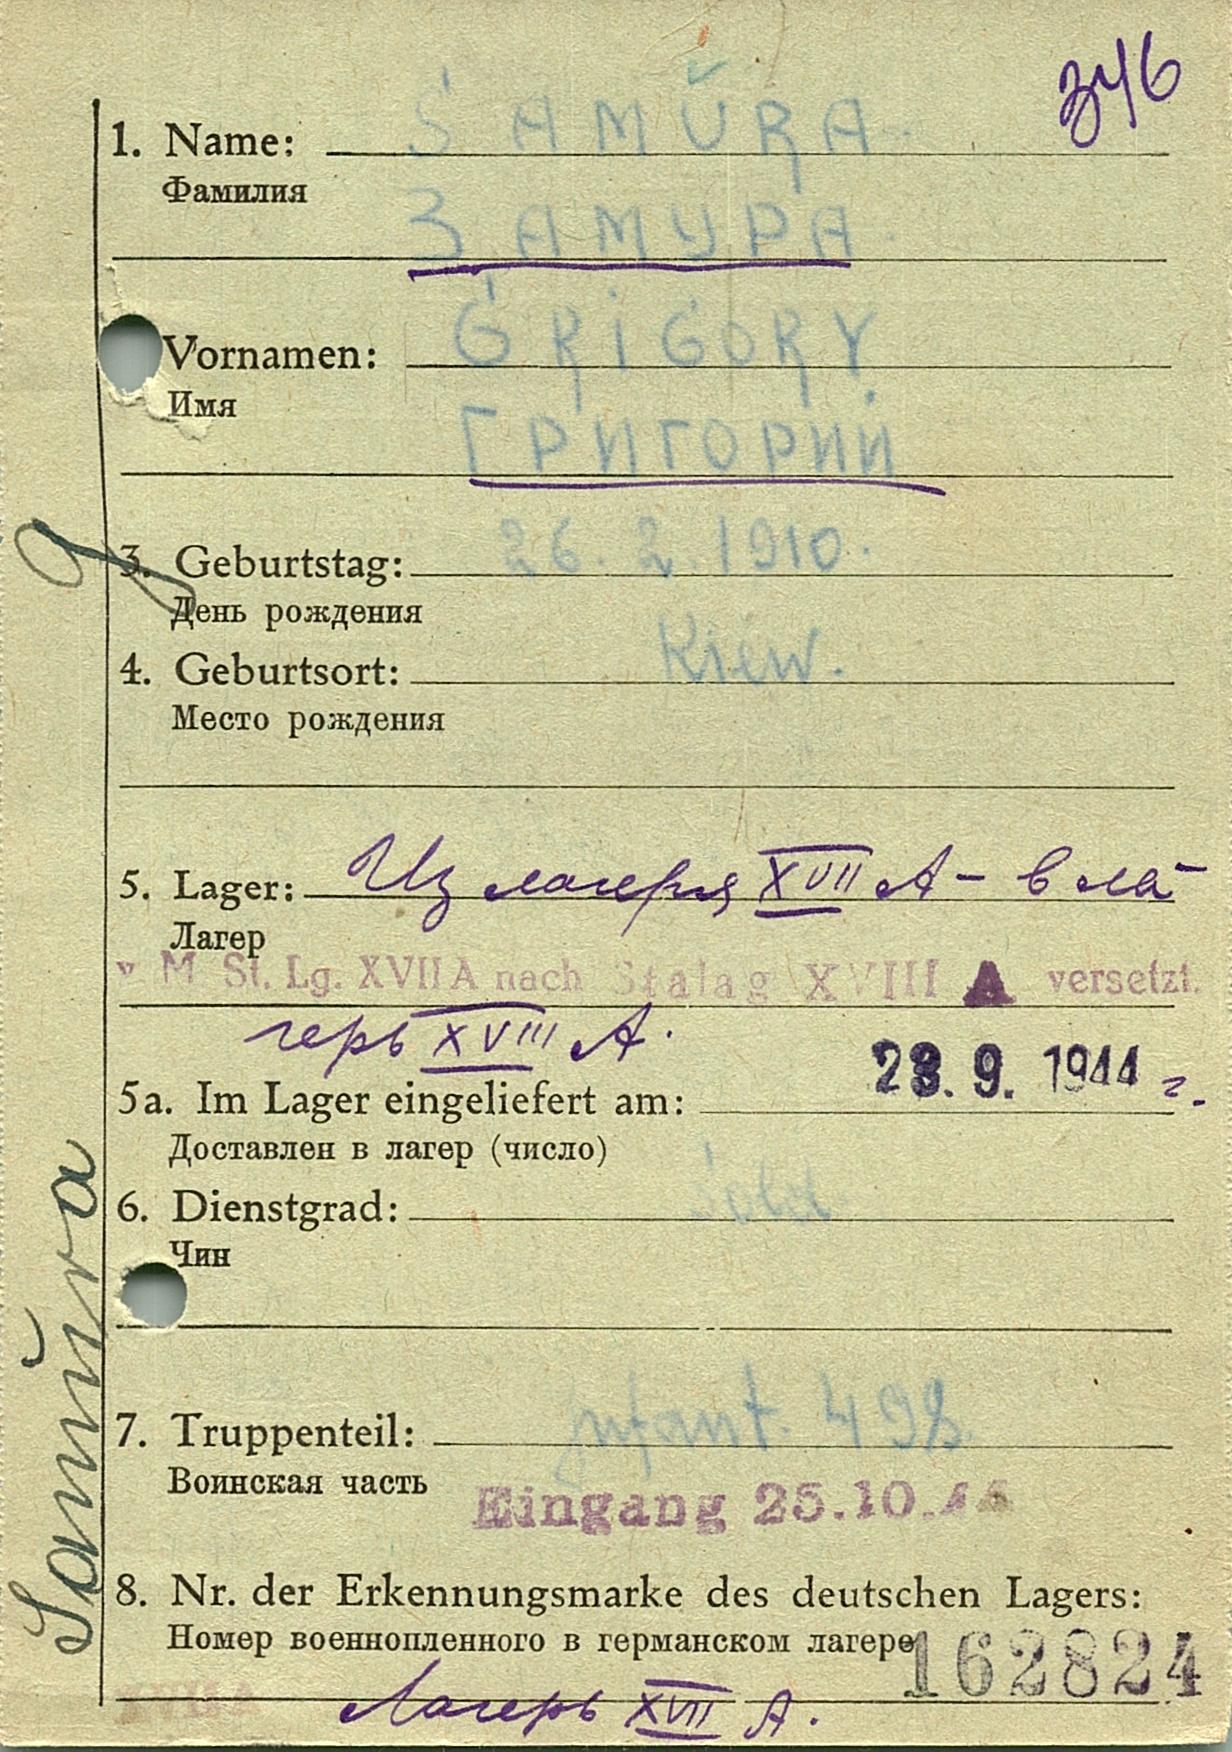 346
1. Name: SAMŬRA.
Фамилия
ЗАМУРА.
Vornamen: GRIGORY.
Имя
ГРИГОРИЙ
3. Geburtstag: 26.2.1910.
День рождения
4. Geburtsort: Kiew.
Место рождения
5. Lager: Из лагеря XVII А - в ла-
Лагер
v. M. St. Lg. XVII A nach Stalag XVIII A versetzt.
герь XVIII А.
23. 9. 1944 г.
5a. Im Lager eingeliefert am:
Доставлен в лагер (число)
6. Dienstgrad: Sold.
Чин
7. Truppenteil: Infant. 498.
Воинская часть
Eingang 25.10.44
8. Nr. der Erkennungsmarke des deutschen Lagers:
Номер военнопленного в германском лагере
162824
Лагерь XVII А.
Samŭra